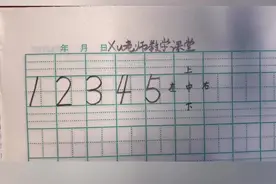 年 月 日 Xu老师数学课堂
上
1 2 3 4 5 左 中 右
下